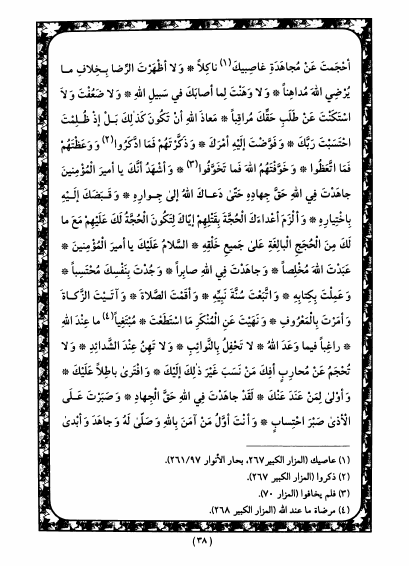 أَحْجَمْتَ عَنْ مُجاهَدَةِ غاصِبيكَ(١) ناكِلاً * وَلا أَظْهَرْتَ الرِّضا بِخِلافِ ما
يُرْضِي اللهَ مُداهِناً * وَلا وَهَنْتَ لِما أَصابَكَ في سَبيلِ اللهِ * وَلا ضَعُفْتَ وَلاَ
اسْتَكَنْتَ عَنْ طَلَبِ حَقِّكَ مُراقِباً * مَعاذَ اللهِ أَنْ تَكُونَ كَذلِكَ بَلْ إِذْ ظُلِمْتَ
احْتَسَبْتَ رَبَّكَ * وَفَوَّضْتَ إِلَيْهِ أَمْرَكَ * وَذَكَّرْتَهُمْ فَمَا ادَّكَرُوا(٢) وَوَعَظْتَهُمْ
فَمَا اتَّعَظُوا * وَخَوَّفْتَهُمُ اللهَ فَما تَخَوَّفُوا(٣) * وَأَشْهَدُ أَنَّكَ يا أَميرَ الْمُؤْمِنينَ
جاهَدْتَ فِي اللهِ حَقَّ جِهادِهِ حَتّىٰ دَعاكَ اللهُ إِلىٰ جِوارِهِ * وَقَبَضَكَ إِلَيْهِ
بِاخْتِيارِهِ * وَأَلْزَمَ أَعْداءَكَ الْحُجَّةَ بِقَتْلِهِمْ إِيّاكَ لِتَكُونَ الْحُجَّةُ لَكَ عَلَيْهِمْ مَعَ ما
لَكَ مِنَ الْحُجَجِ الْبالِغَةِ عَلىٰ جَميعِ خَلْقِهِ * السَّلامُ عَلَيْكَ يا أَميرَ الْمُؤْمِنينَ *
عَبَدْتَ اللهَ مُخْلِصاً * وَجاهَدْتَ فِي اللهِ صابِراً * وَجُدْتَ بِنَفْسِكَ مُحْتَسِباً *
وَعَمِلْتَ بِكِتابِهِ * وَاتَّبَعْتَ سُنَّةَ نَبِيِّهِ * وَأَقَمْتَ الصَّلاةَ * وَآتَيْتَ الزَّكاةَ
وَأَمَرْتَ بِالْمَعْرُوفِ * وَنَهَيْتَ عَنِ الْمُنْكَرِ مَا اسْتَطَعْتَ * مُبْتَغِياً(٤) ما عِنْدَ اللهِ
* راغِباً فيما وَعَدَ اللهُ * لا تَحْفِلُ بِالنَّوائِبِ * وَلا تَهِنُ عِنْدَ الشَّدائِدِ * وَلا
تُحْجِمُ عَنْ مُحارِبٍ أَفِكَ مَنْ نَسَبَ غَيْرَ ذٰلِكَ إِلَيْكَ * وَافْتَرىٰ باطِلاً عَلَيْكَ *
وَأَوْلىٰ لِمَنْ عَنَدَ عَنْكَ * لَقَدْ جاهَدْتَ فِي اللهِ حَقَّ الْجِهادِ * وَصَبَرْتَ عَلَى
الْأَذىٰ صَبْرَ احْتِسابٍ * وَأَنْتَ أَوَّلُ مَنْ آمَنَ بِاللهِ وَصَلّىٰ لَهُ وَجاهَدَ وَأَبْدىٰ
(١) عاصيك (المزار الكبير٢٦٧، بحار الأنوار ٢٦١/٩٧).
(٢) ذكروا (المزار الكبير ٢٦٧).
(٣) فلم يخافوا (المزار ٧٠).
(٤) مرضاة ما عند الله (المزار الكبير ٢٦٨).
(٣٨)